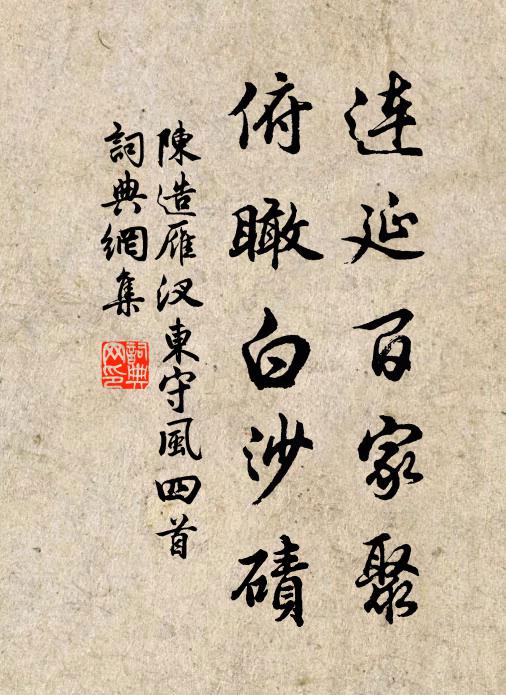 連延百家聚
俯瞰白沙磧
陳造雁汊東守風四首
詞典網集
詞典
网印